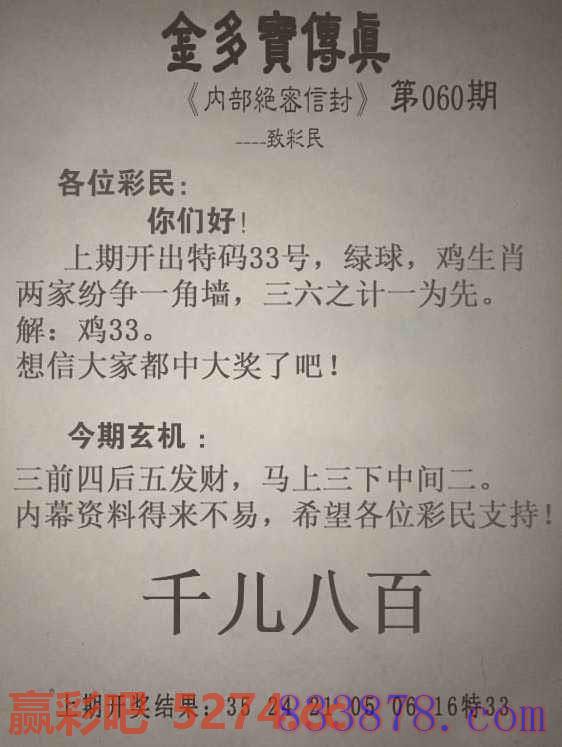 金多寳傳眞
《内部絕密信封》 第060期
----致彩民
各位彩民：
你们好！
上期开出特码33号，绿球，鸡生肖
两家纷争一角墙，三六之计一为先。
解：鸡33。
想信大家都中大奖了吧！
今期玄机：
三前四后五发财，马上三下中间二。
内幕资料得来不易，希望各位彩民支持！
千儿八百
上期开奖结果：35 24 21 05 06 16特33
赢彩吧 5274.cc
883878.com